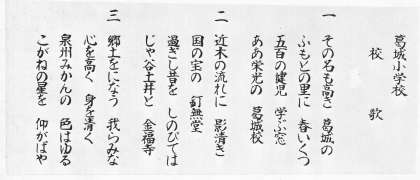 葛城小学校
校歌
一 その名も高き 葛城の
ふもとの里に 春いくつ
五百の健児 学ぶ窓
ああ栄光の 葛城校
二 近木の流れに 影清き
国の宝の 釘無堂
過ぎし昔を しのびては
じゃ谷土井と 金福寺
三 郷土をになう 我らみな
心を高く 身を清く
泉州みかんの 色はゆる
こがねの星を 仰がばや